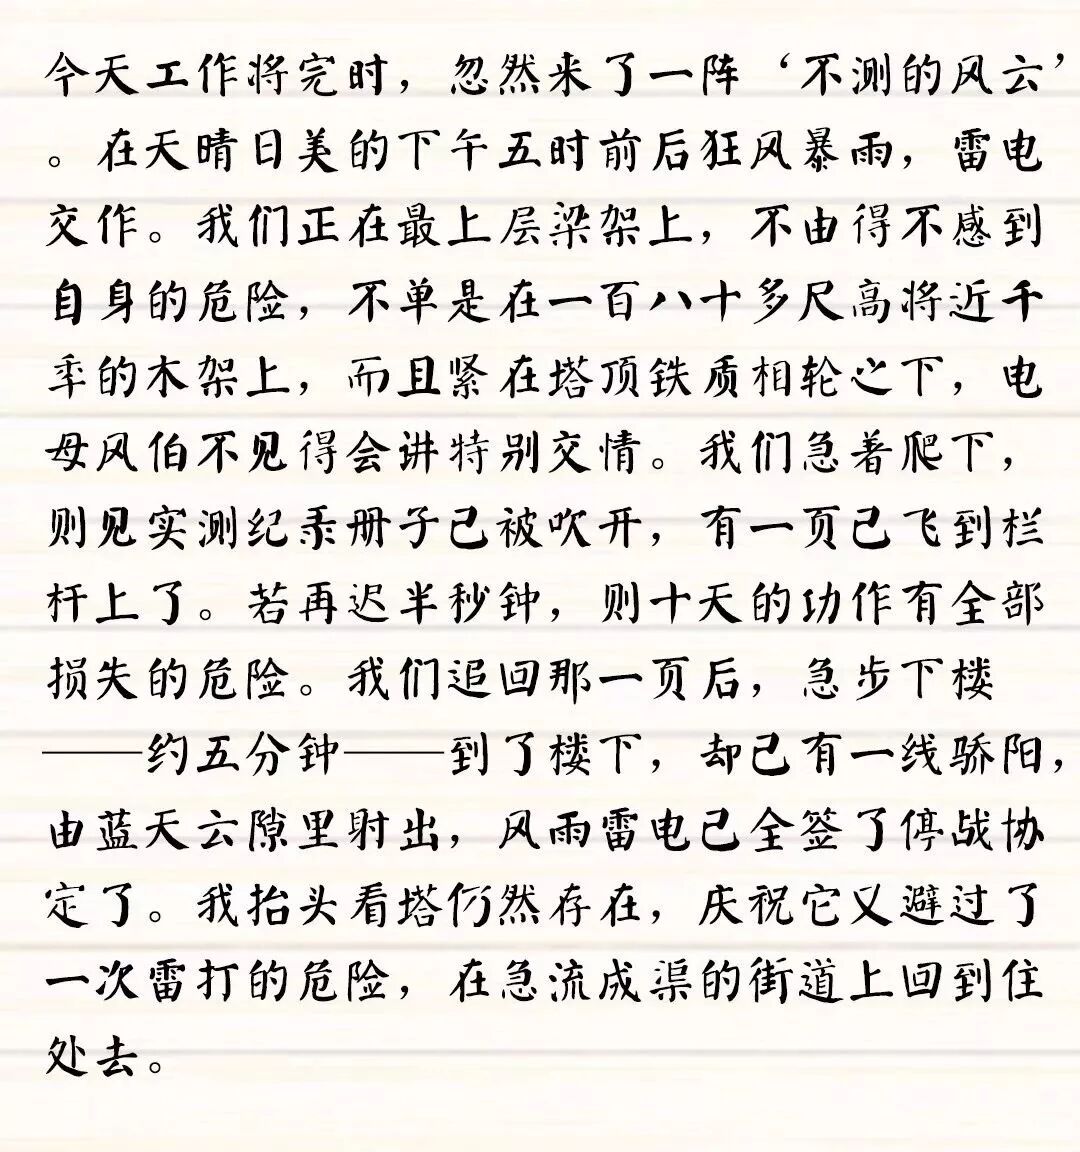 今天工作将完时，忽然来了一阵‘不测的风云’
。在天晴日美的下午五时前后狂风暴雨，雷电
交作。我们正在最上层梁架上，不由得不感到
自身的危险，不单是在一百八十多尺高将近千
年的木架上，而且紧在塔顶铁质相轮之下，电
母风伯不见得会讲特别交情。我们急着爬下，
则见实测纪录册子已被吹开，有一页已飞到栏
杆上了。若再迟半秒钟，则十天的功作有全部
损失的危险。我们追回那一页后，急步下楼
——约五分钟——到了楼下，却已有一线骄阳，
由蓝天云隙里射出，风雨雷电已全签了停战协
定了。我抬头看塔仍然存在，庆祝它又避过了
一次雷打的危险，在急流成渠的街道上回到住
处去。